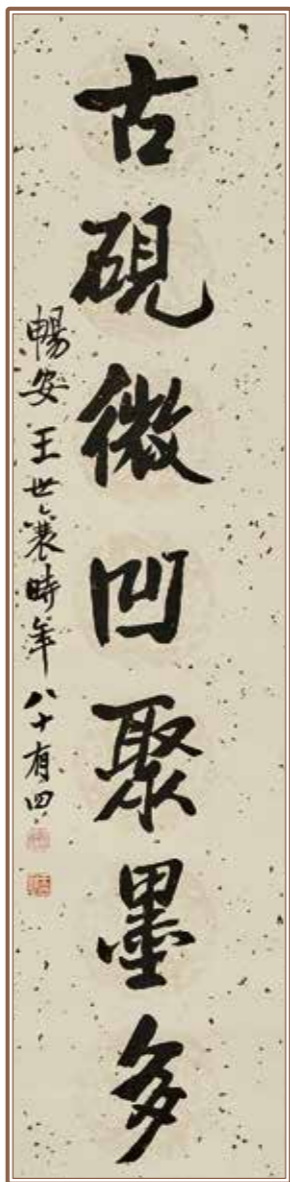 古硯微凹聚墨多
暢安王世襄時年八十有四